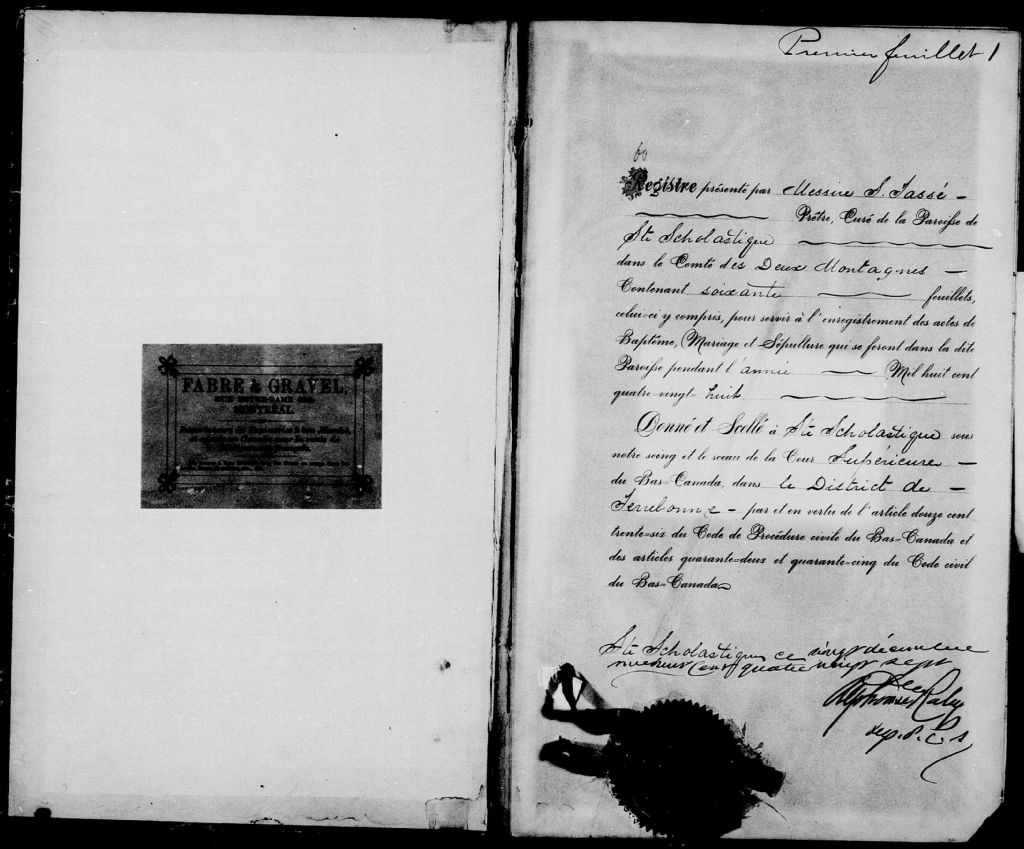 FABRE & GRAVEL,
RUE NOTRE-DAME
MONTRÉAL.
Premier feuillet 1
60
Registre présenté par Messire S. Tassé –
Prêtre, Curé de la Paroisse de
Ste Scholastique
dans le Comté des Deux Montagnes –
Contenant soixante feuillets,
celui-ci y compris, pour servir à l'enregistrement des actes de
Baptême, Mariage et Sépulture qui se feront dans la dite
Paroisse pendant l'année Mil huit cent
quatre-vingt-huit
Donné et Scellé à Ste Scholastique sous
notre seing et le sceau de la Cour Supérieure –
du Bas-Canada, dans le District de –
Terrebonne – par et en vertu de l'article douze cent
trente-six du Code de Procédure civile du Bas-Canada et
des articles quarante-deux et quarante-cinq du Code civil
du Bas-Canada
Ste Scholastique ce vingt décembre
cent quatre vingt sept
dep. P. C. S